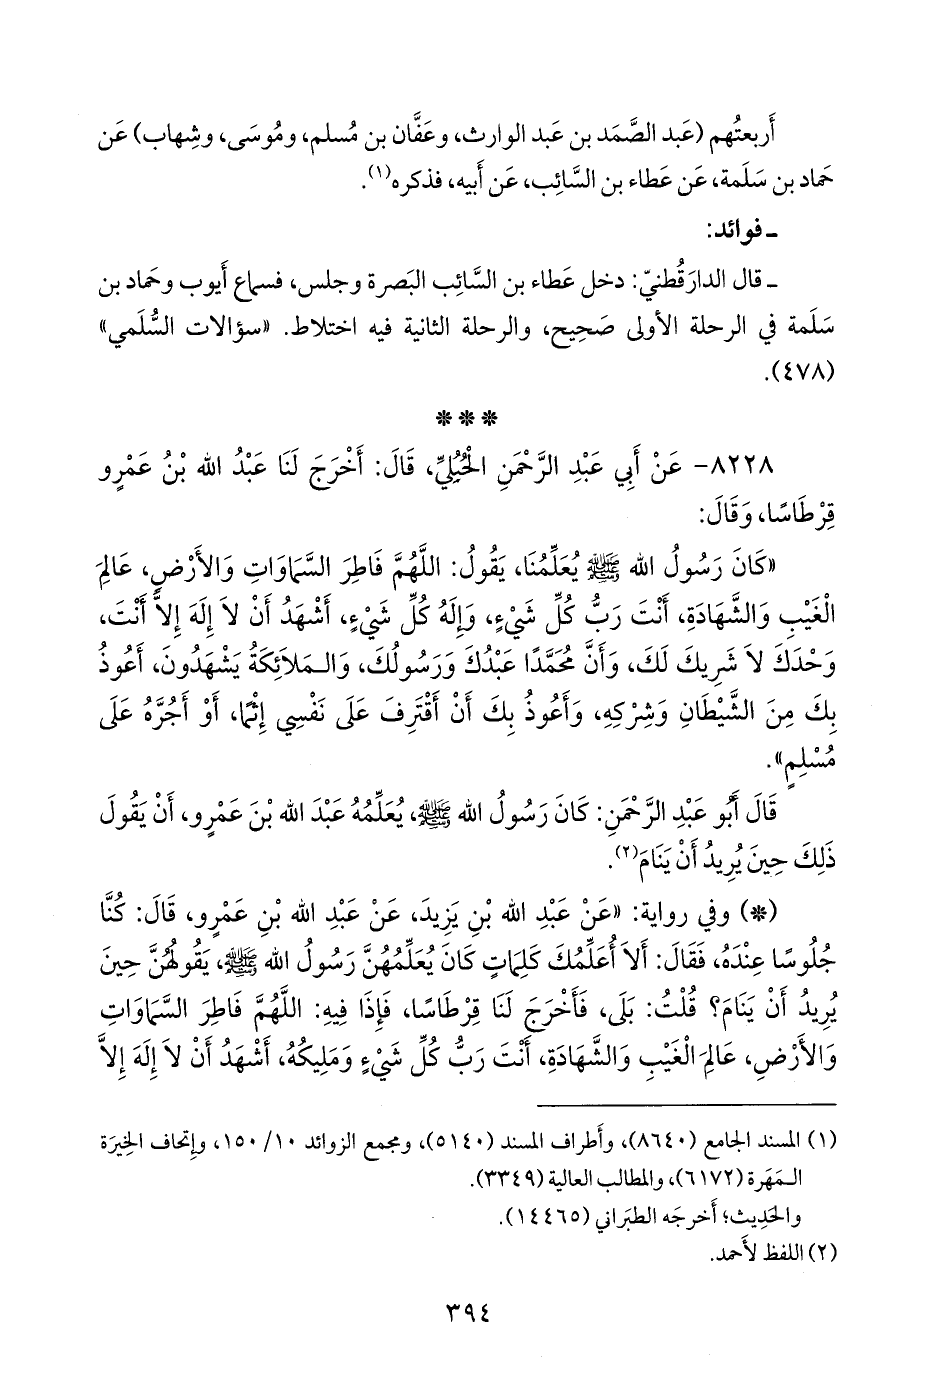 أَربعتُهم (عَبد الصَّمَد بن عَبد الوارث، وعَفَّان بن مُسلم، ومُوسَى، وشِهاب) عَن
حَماد بن سَلَمة، عَن عَطاء بن السَّائب، عَن أَبيه، فذكره(١).
ـ فوائد:
ـ قال الدارَقُطنيّ: دخل عَطاء بن السَّائِب البَصرة وجلس، فسماع أَيوب وحَماد بن
سَلَمة في الرحلة الأولى صَحِيح، والرحلة الثانية فيه اختلاط. «سؤالات السُّلَمي»
(٤٧٨).
* * *
٨٢٢٨- عَنْ أَبِي عَبْدِ الرَّحْمَنِ الْحُبُلِيِّ، قَالَ: أَخْرَجَ لَنَا عَبْدُ الله بْنُ عَمْرٍو
قِرْطَاسًا، وَقَالَ:
«كَانَ رَسُولُ الله ﷺ يُعَلِّمُنَا، يَقُولُ: اللَّهُمَّ فَاطِرَ السَّمَاوَاتِ وَالأَرْضِ، عَالِمَ
الْغَيْبِ وَالشَّهَادَةِ، أَنْتَ رَبُّ كُلِّ شَيْءٍ، وَإِلَهُ كُلِّ شَيْءٍ، أَشْهَدُ أَنْ لاَ إِلَهَ إِلاَّ أَنْتَ،
وَحْدَكَ لاَ شَرِيكَ لَكَ، وَأَنَّ مُحَمَّدًا عَبْدُكَ وَرَسُولُكَ، وَالـمَلاَئِكَةُ يَشْهَدُونَ، أَعُوذُ
بِكَ مِنَ الشَّيْطَانِ وَشِرْكِهِ، وَأَعُوذُ بِكَ أَنْ أَقْتَرِفَ عَلَى نَفْسِي إِثْمًا، أَوْ أَجُرَّهُ عَلَى
مُسْلِمٍ».
قَالَ أَبُو عَبْدِ الرَّحْمَنِ: كَانَ رَسُولُ الله ﷺ، يُعَلِّمُهُ عَبْدَ الله بْنَ عَمْرٍو، أَنْ يَقُولَ
ذَلِكَ حِينَ يُرِيدُ أَنْ يَنَامَ(٢).
(*) وفي رواية: «عَنْ عَبْدِ الله بْنِ يَزِيدَ، عَنْ عَبْدِ الله بْنِ عَمْرٍو، قَالَ: كُنَّا
جُلُوسًا عِنْدَهُ، فَقَالَ: أَلاَ أُعَلِّمُكَ كَلِمَاتٍ كَانَ يُعَلِّمُهُنَّ رَسُولُ الله ﷺ، يَقُولُهُنَّ حِينَ
يُرِيدُ أَنْ يَنَامَ؟ قُلْتُ: بَلَى، فَأَخْرَجَ لَنَا قِرْطَاسًا، فَإِذَا فِيهِ: اللَّهُمَّ فَاطِرَ السَّمَاوَاتِ
وَالأَرْضِ، عَالِمَ الْغَيْبِ وَالشَّهَادَةِ، أَنْتَ رَبُّ كُلِّ شَيْءٍ وَمَلِيكُهُ، أَشْهَدُ أَنْ لاَ إِلَهَ إِلاَّ
(١) المسند الجامع (٨٦٤٠)، وأَطراف المسند (٥١٤٠)، ومجمع الزوائد ١٠/ ١٥٠، وإتحاف الخِيرَة
الـمَهَرة (٦١٧٢)، والمطالب العالية (٣٣٤٩).
والحَدِيث؛ أخرجَه الطبَراني (١٤٤٦٥).
(٢) اللفظ لأَحمد.
٣٩٤